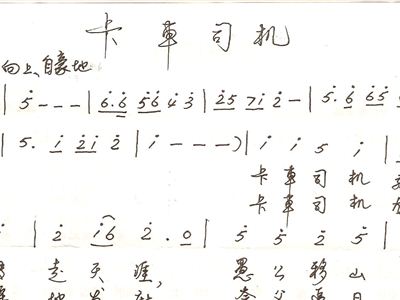 卡車司机
向上、自豪地
| 5 - - - | 6. 6 56 4 3 | 25 7i 2 - | 5. 6 65
| 5. i 2i 2 | i - - - ) | i i 5 i |
卡車司机
卡車司机
i | 2 i6 2. 0 | 5 5 2 5 |
走天涯, 愚公移山